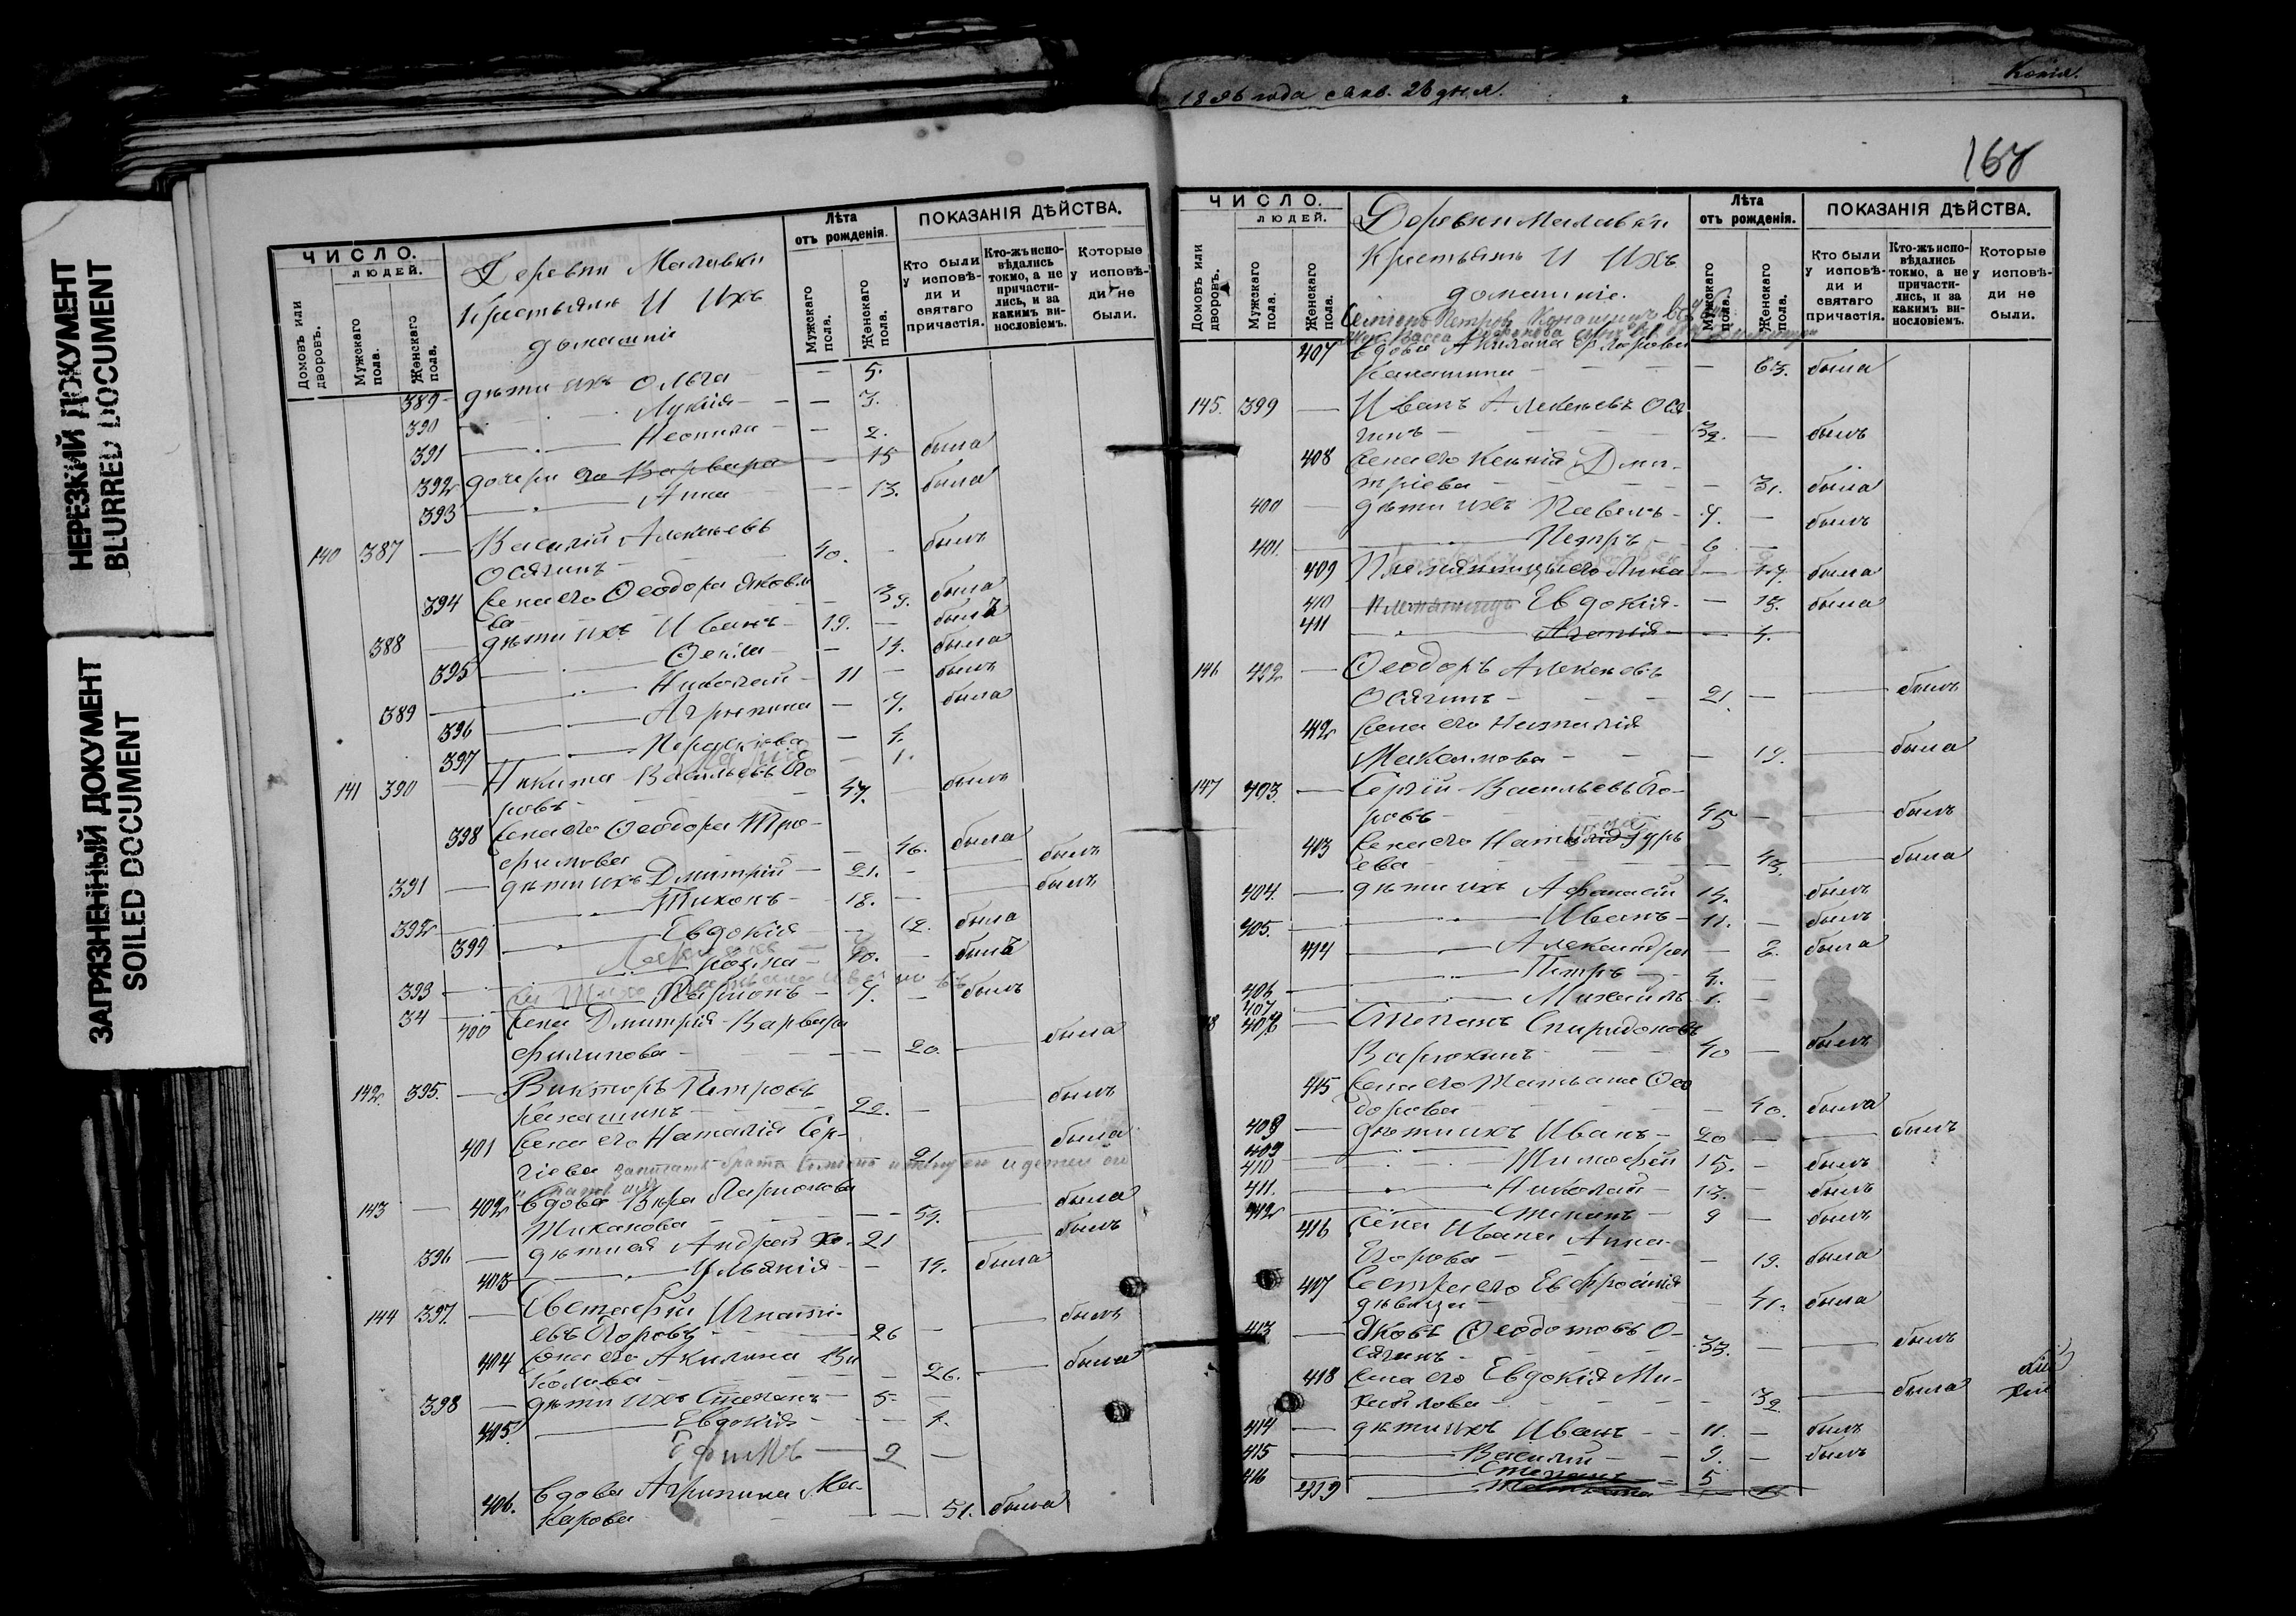 НЕРЕЗКИЙ ДОКУМЕНТ
BLURRED DOCUMENT
ЗАГРЯЗНЕННЫЙ ДОКУМЕНТ
SOILED DOCUMENT
ЧИСЛО.
ЛЮДЕЙ.
Домовъ или дворовъ.
Мужскаго пола.
Женскаго пола.
Деревни Малавки
Крестьяне И Ихъ
домашніе
Лѣта отъ рожденія.
Мужскаго пола.
Женскаго пола.
ПОКАЗАНІЯ ДѢЙСТВА.
Кто были у исповѣди и святаго причастія.
Кто-жъ исповѣдались токмо, а не причастились, и за какимъ винословіемъ.
Которые у исповѣди не были.
389 дѣти ихъ Ольга — 5.
390 Лукія — 3.
391 — 2.
392 дочери его Варвара — 15 была
393 Анна — 13. была
140 387 — Василій Алексѣевъ
Осягинъ 40. — былъ
394 Жена его Ѳеодора Яковле
ва — 39. была
388 — дѣти ихъ Иванъ 19. — былъ
395 Ѳекла — 14. была
389 — Николай 11 — былъ
396 Агрипина — 7. была
397 Параскева — 4.
Марія — 1.
141 390 — Никита Васильевъ Его
ровъ 47. — былъ
398 Жена его Ѳеодора Тро-
фимова — 46. была
391 — дѣти ихъ Дмитрій 21. — — былъ
392 — Тихонъ 18. — былъ
399 Евдокія — 12. была
393 — 40. — былъ
34 — Ларіонъ 7. — былъ
400 Жена Дмитрія Варвара
Филипова — 20. — была
142 395. — Викторъ Петровъ
Канашинъ 22. — — былъ
401 Жена его Наталія Сер-
гіева — 21 — была
записать брата
143 — 402 Вдова Вѣра Ларіонова
Тиханова — 54. — была
396 — дѣти ея Андрей Хо. 21 — былъ
403 Ульянія — 14. была
144 397. — Евстафій Игнати-
евъ Егоровъ 26 — — былъ
404 Жена его Акилина Ни
колаева — 26. — была
398 — дѣти ихъ Степанъ 5 —
405. Евдокія — 4.
Ефимъ — 2 —
406. Вдова Агрипина Ма-
карова — 51. была
1896 года Янв. 26 дня.
Копія.
167
ЧИСЛО.
ЛЮДЕЙ.
Домовъ или дворовъ.
Мужскаго пола.
Женскаго пола.
Деревни Малавки
Крестьяне И Ихъ
домашніе.
Лѣта отъ рожденія.
Мужскаго пола.
Женскаго пола.
ПОКАЗАНІЯ ДѢЙСТВА.
Кто были у исповѣди и святаго причастія.
Кто-жъ исповѣдались токмо, а не причастились, и за какимъ винословіемъ.
Которые у исповѣди не были.
Семіонъ Петровъ Канашинъ
407 Вдова Акилина
Канашина — 63. была
145. 399 — Иванъ Алексѣевъ Ося
гинъ 32. — былъ
408 Жена его Ксенія Дми-
тріева — 31. была
400 — дѣти ихъ Павелъ 7. — былъ
401. Петръ 6 —
409 Племянницы его Анна — 17. была
410 Евдокія — 13. была
411 Агапія — 4.
146 402 — Ѳеодоръ Алексѣевъ
Осягинъ 21. — — былъ
412 Жена его Наталія
Максимова — 19. — была
147 403. — Сергій Васильевъ Его-
ровъ 45 — — былъ
413 Жена его Гурь
ева — 43. — была
404. — дѣти ихъ Афанасій 14. былъ
405. Иванъ 11. — былъ
414 Александра — 8. была
406 Петръ 4. —
407 Михаилъ 1. —
407 — Степанъ Спиридоновъ
Варюхинъ 40 — былъ
415 Жена его Татьяна Ѳео
дорова — 40. была
408 — дѣти ихъ Иванъ 20 — — былъ
409
410 Тимофей 15. — былъ
411. Николай 13. — былъ
412 Степанъ 9 — былъ
416 Жена Ивана Анна
Егорова — 19. была
417 Сестра его Евфросинія
дѣвица — 41. была
413 — Яковъ Ѳеодотовъ О-
сягинъ 33. — — былъ
418 Жена его Евдокія Ми-
хайлова — 32 — была
414 — дѣти ихъ Иванъ 11. — былъ
415 Василій 9. — былъ
416 Степанъ 5
419 Татьяна